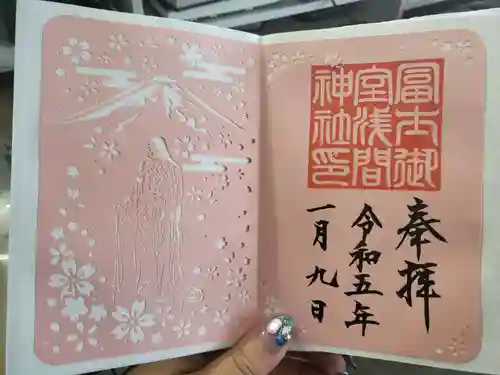 冨士御
室浅間
神社印
奉拝
令和五年
一月九日